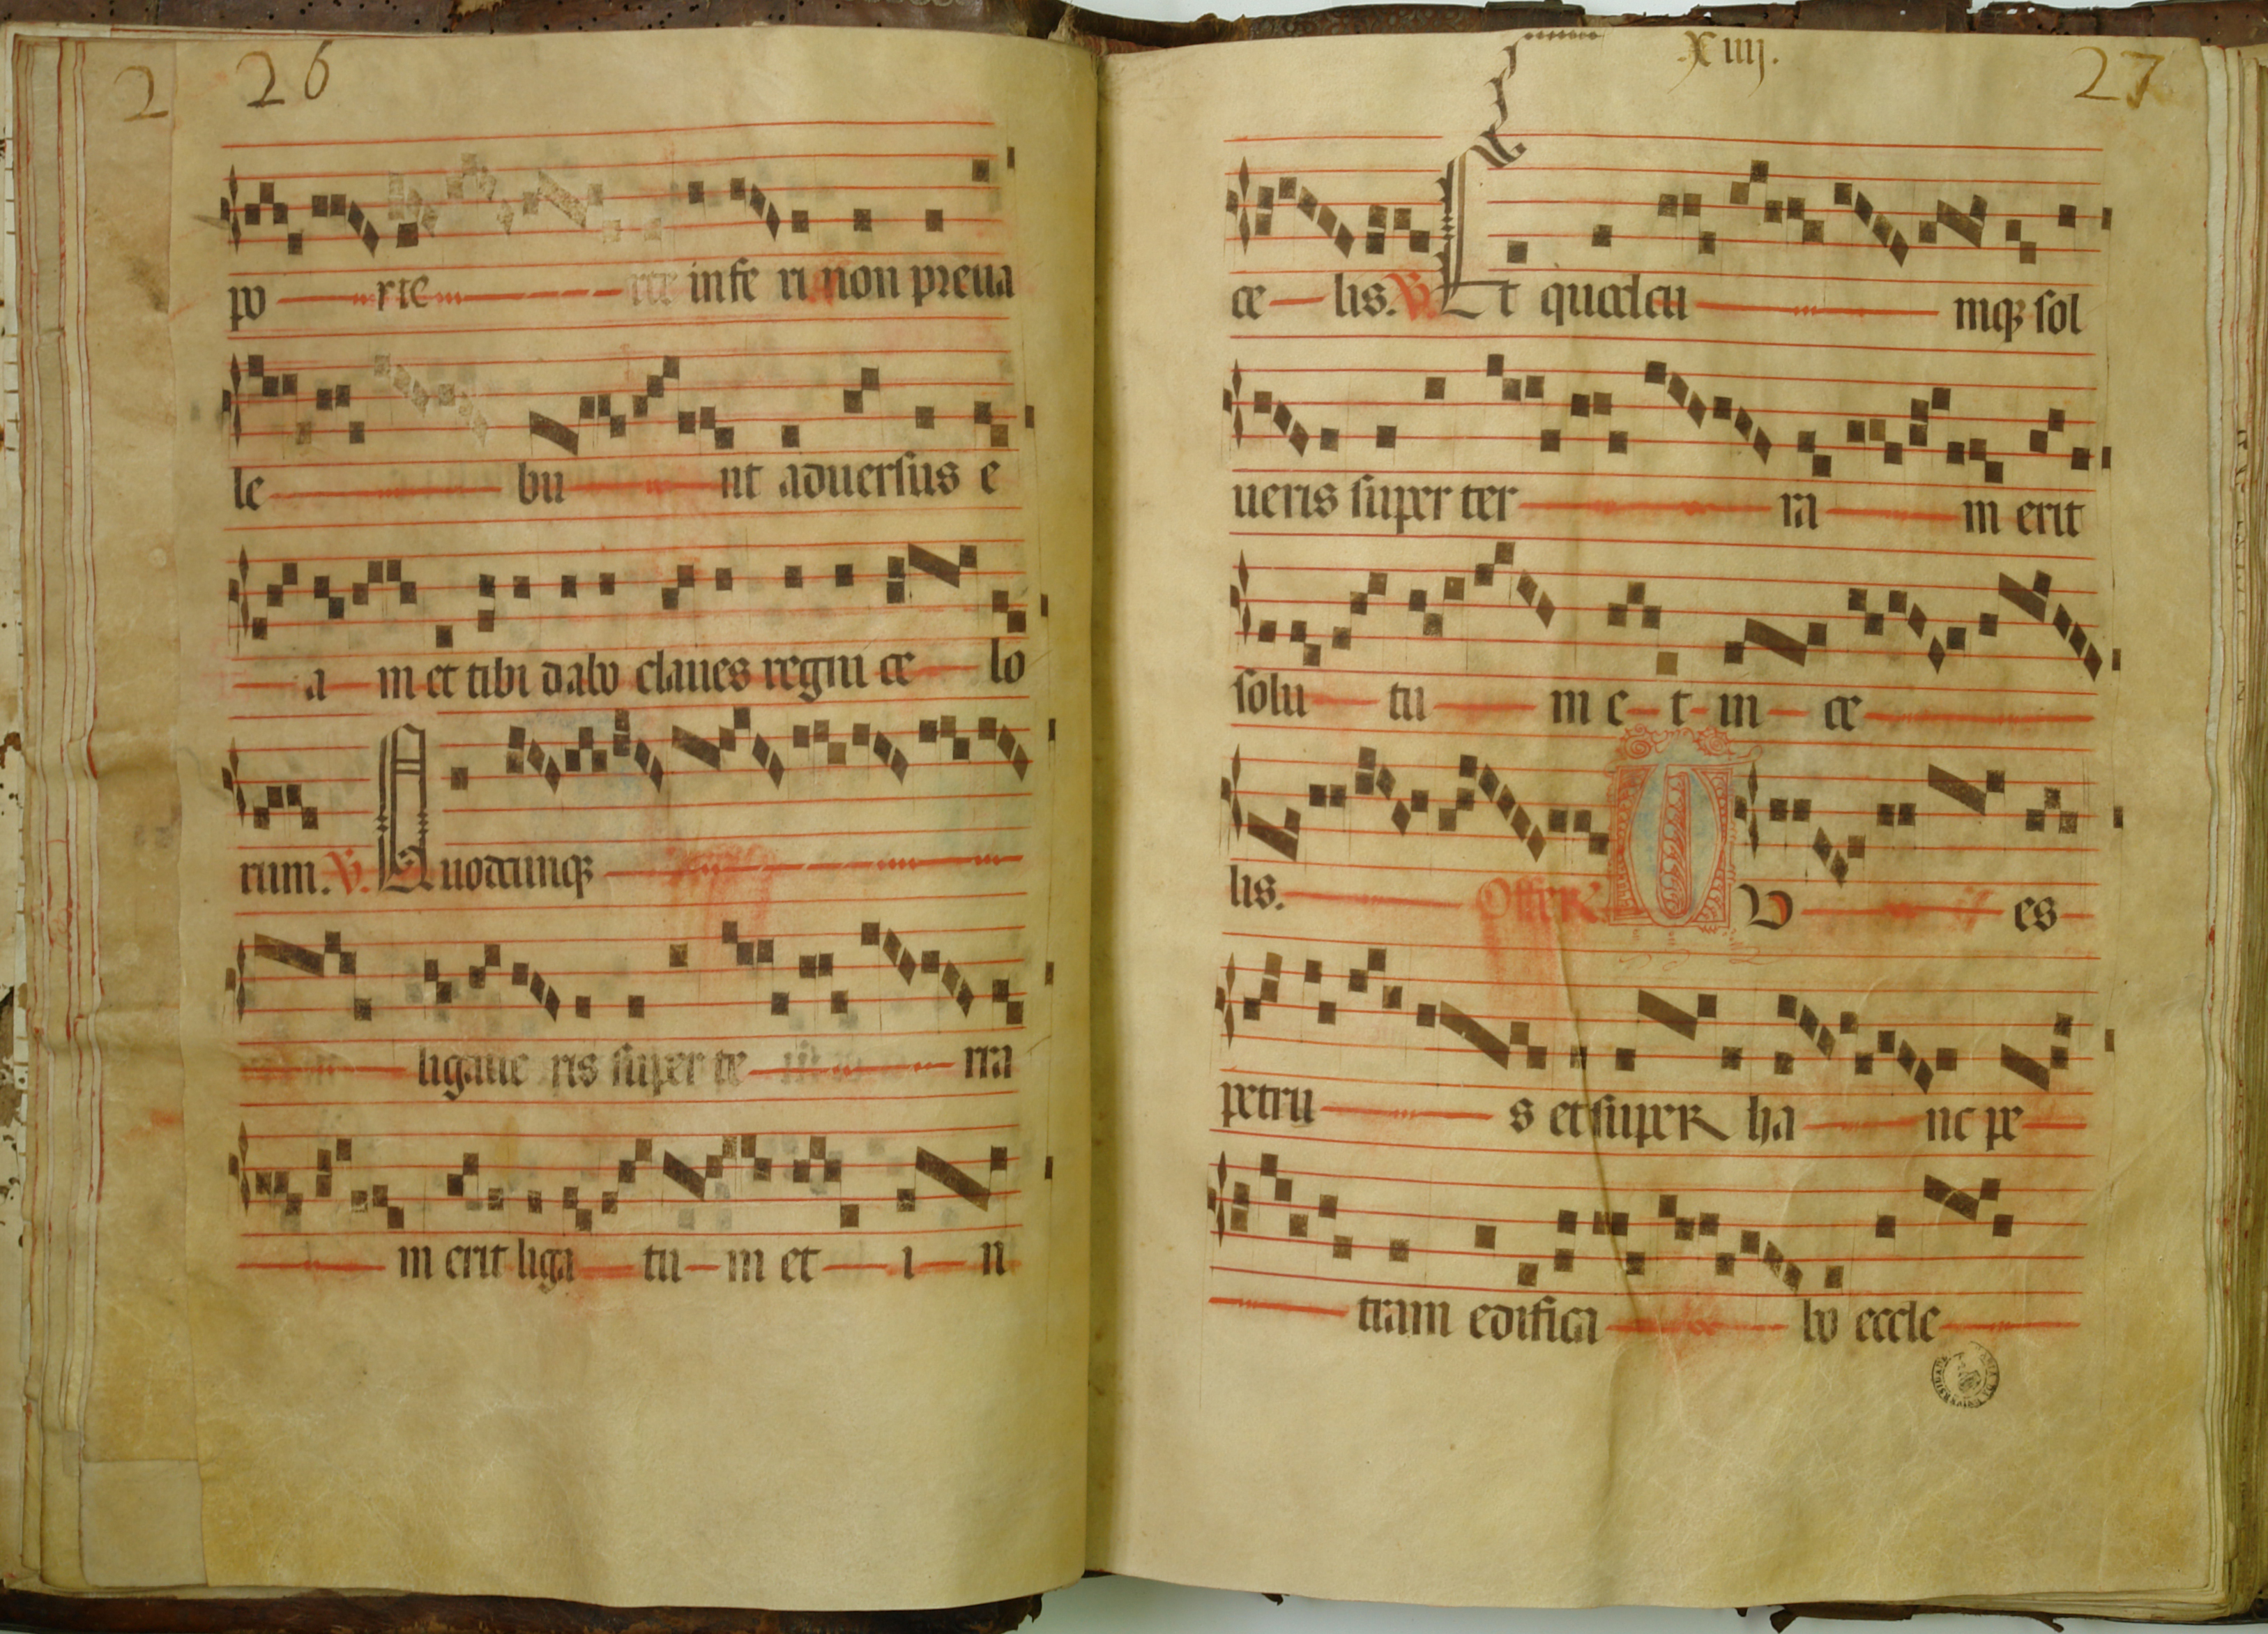 2 26
po rte infe ri non preua
le bu nt aduersus e
a m et tibi dabo claues regni ce lo
rum. V. Quodcunqꝫ
ligaue ris super te rra
m erit liga tu m et i n
XIIIJ. 27
ce lis. V. Et quodcu mqꝫ sol
ueris super ter ra m erit
solu tu m e t in ce
lis. Offer U es
petru s et super ha nc pe
tram edifica bo eccle